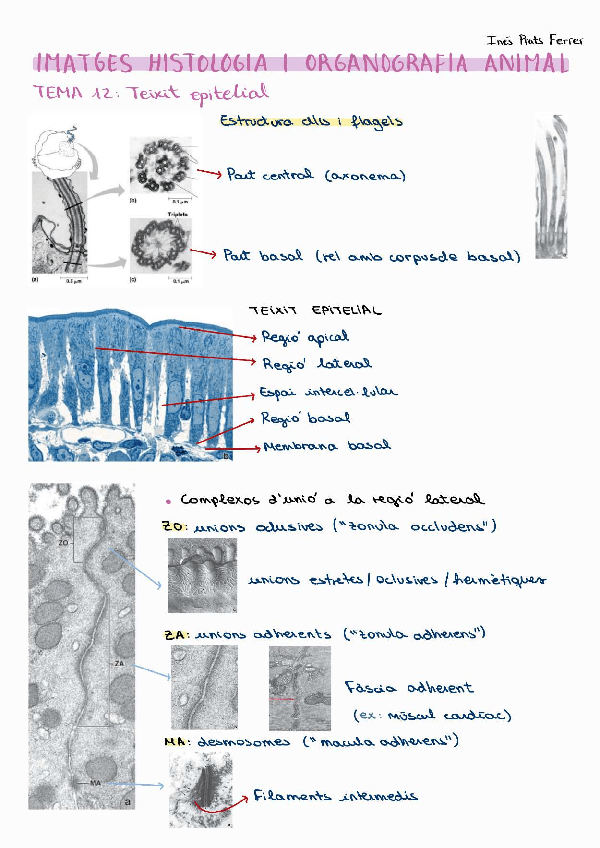 Inés Prats Ferrer
IMATGES HISTOLOGIA I ORGANOGRAFIA ANIMAL
TEMA 12: Teixit epitelial
Estructura cilis i flagels
Part central (axonema)
(b) 0.1 μm
Triplets
Part basal (rel amb corpuscle basal)
(a) 0.2 μm
(c) 0.1 μm
TEIXIT EPITELIAL
Regió apical
Regió lateral
Espai intercel·lular
Regió basal
Membrana basal
b
• Complexos d'unió a la regió lateral
ZO: unions oclusives ("zonula occludens")
ZO
unions estretes/oclusives/hermètiques
ZA: unions adherents ("zonula adherens")
ZA
Fàscia adherent
(ex: múscul cardíac)
MA: desmosomes ("macula adherens")
MA
Filaments intermedis
a